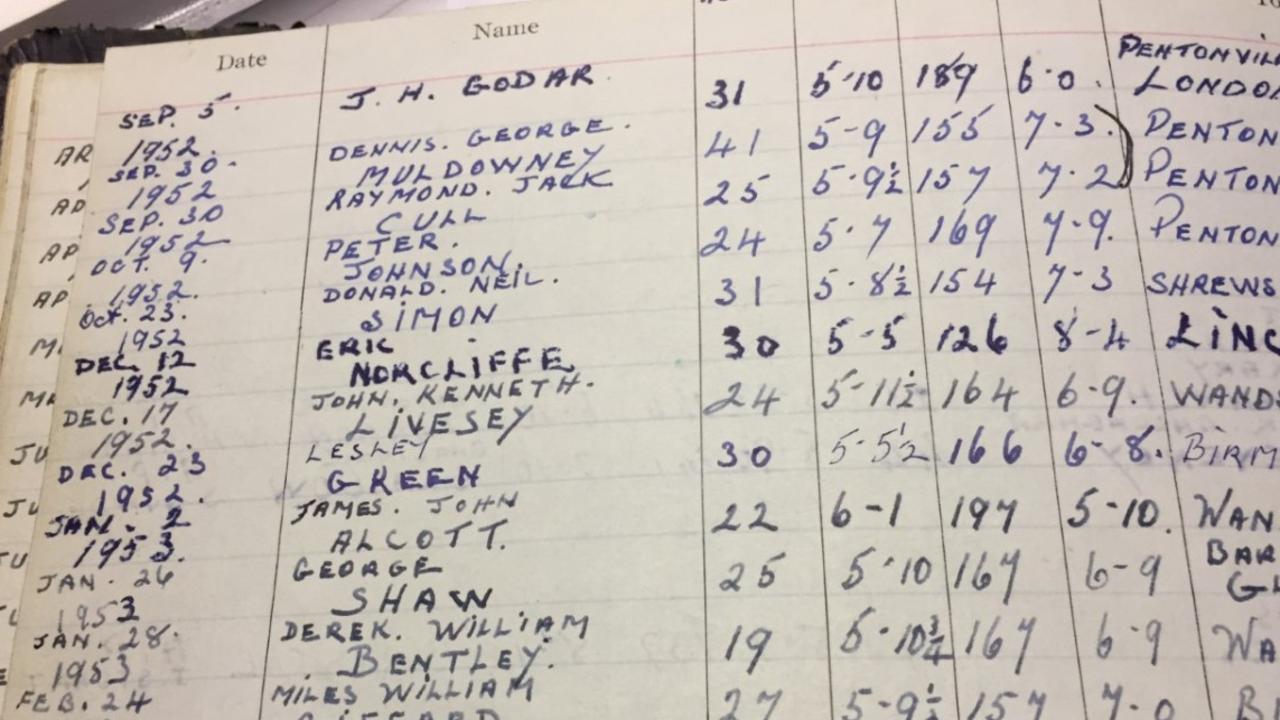 Date Name To
SEP. 5. J. H. GODAR 31 5-10 189 6-0. PENTONVIL
1952. LONDO
SEP. 30. DENNIS. GEORGE. 41 5-9 155 7-3. PENTON
1952 MULDOWNEY
SEP. 30 RAYMOND. JACK 25 5-9½ 157 7-2 PENTON
1952 CULL
OCT. 9. PETER. 24 5-7 169 7-9. PENTON
1952. JOHNSON.
Oct. 23. DONALD. NEIL. 31 5-8½ 154 7-3 SHREWS
1952 SIMON
DEC. 12 ERIC 30 5-5 126 8-4 LINC
1952 NORCLIFFE
DEC. 17 JOHN. KENNETH. 24 5-11½ 164 6-9. WANDS
1952. LIVESEY
DEC. 23 LESLEY 30 5-5½ 166 6-8. BIRM
1952. GREEN
JAN. 2 JAMES. JOHN 22 6-1 197 5-10. WAN
1953. ALCOTT.
JAN. 26 GEORGE 25 5-10 167 6-9 BAR
1953 SHAW GL
JAN. 28. DEREK. WILLIAM 19 5-10¾ 167 6-9 WA
1953 BENTLEY.
FEB. 24 MILES WILLIAM 27 5-9½ 157 7-0 B
AR
AD
AP
AP.
M
MA
JU
JU
TU